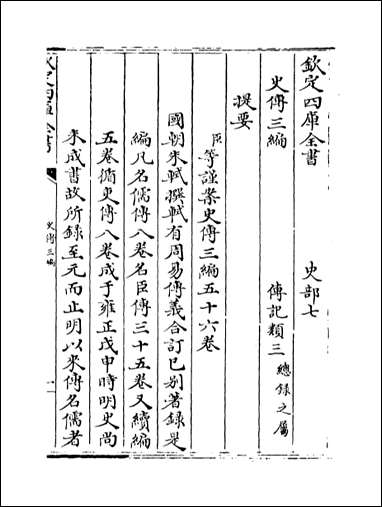 欽定四庫全書　史部七
史傳三編　傳記類三總錄之屬
提要
臣等謹案史傳三編五十六卷
國朝朱軾撰軾有周易傳義合訂已別著錄是
編凡名儒傳八卷名臣傳三十五卷又續編
五卷循吏傳八卷成于雍正戊申時明史尚
未成書故所錄至元而止明以來傳名儒者
欽定四庫全書
史傳三編
一